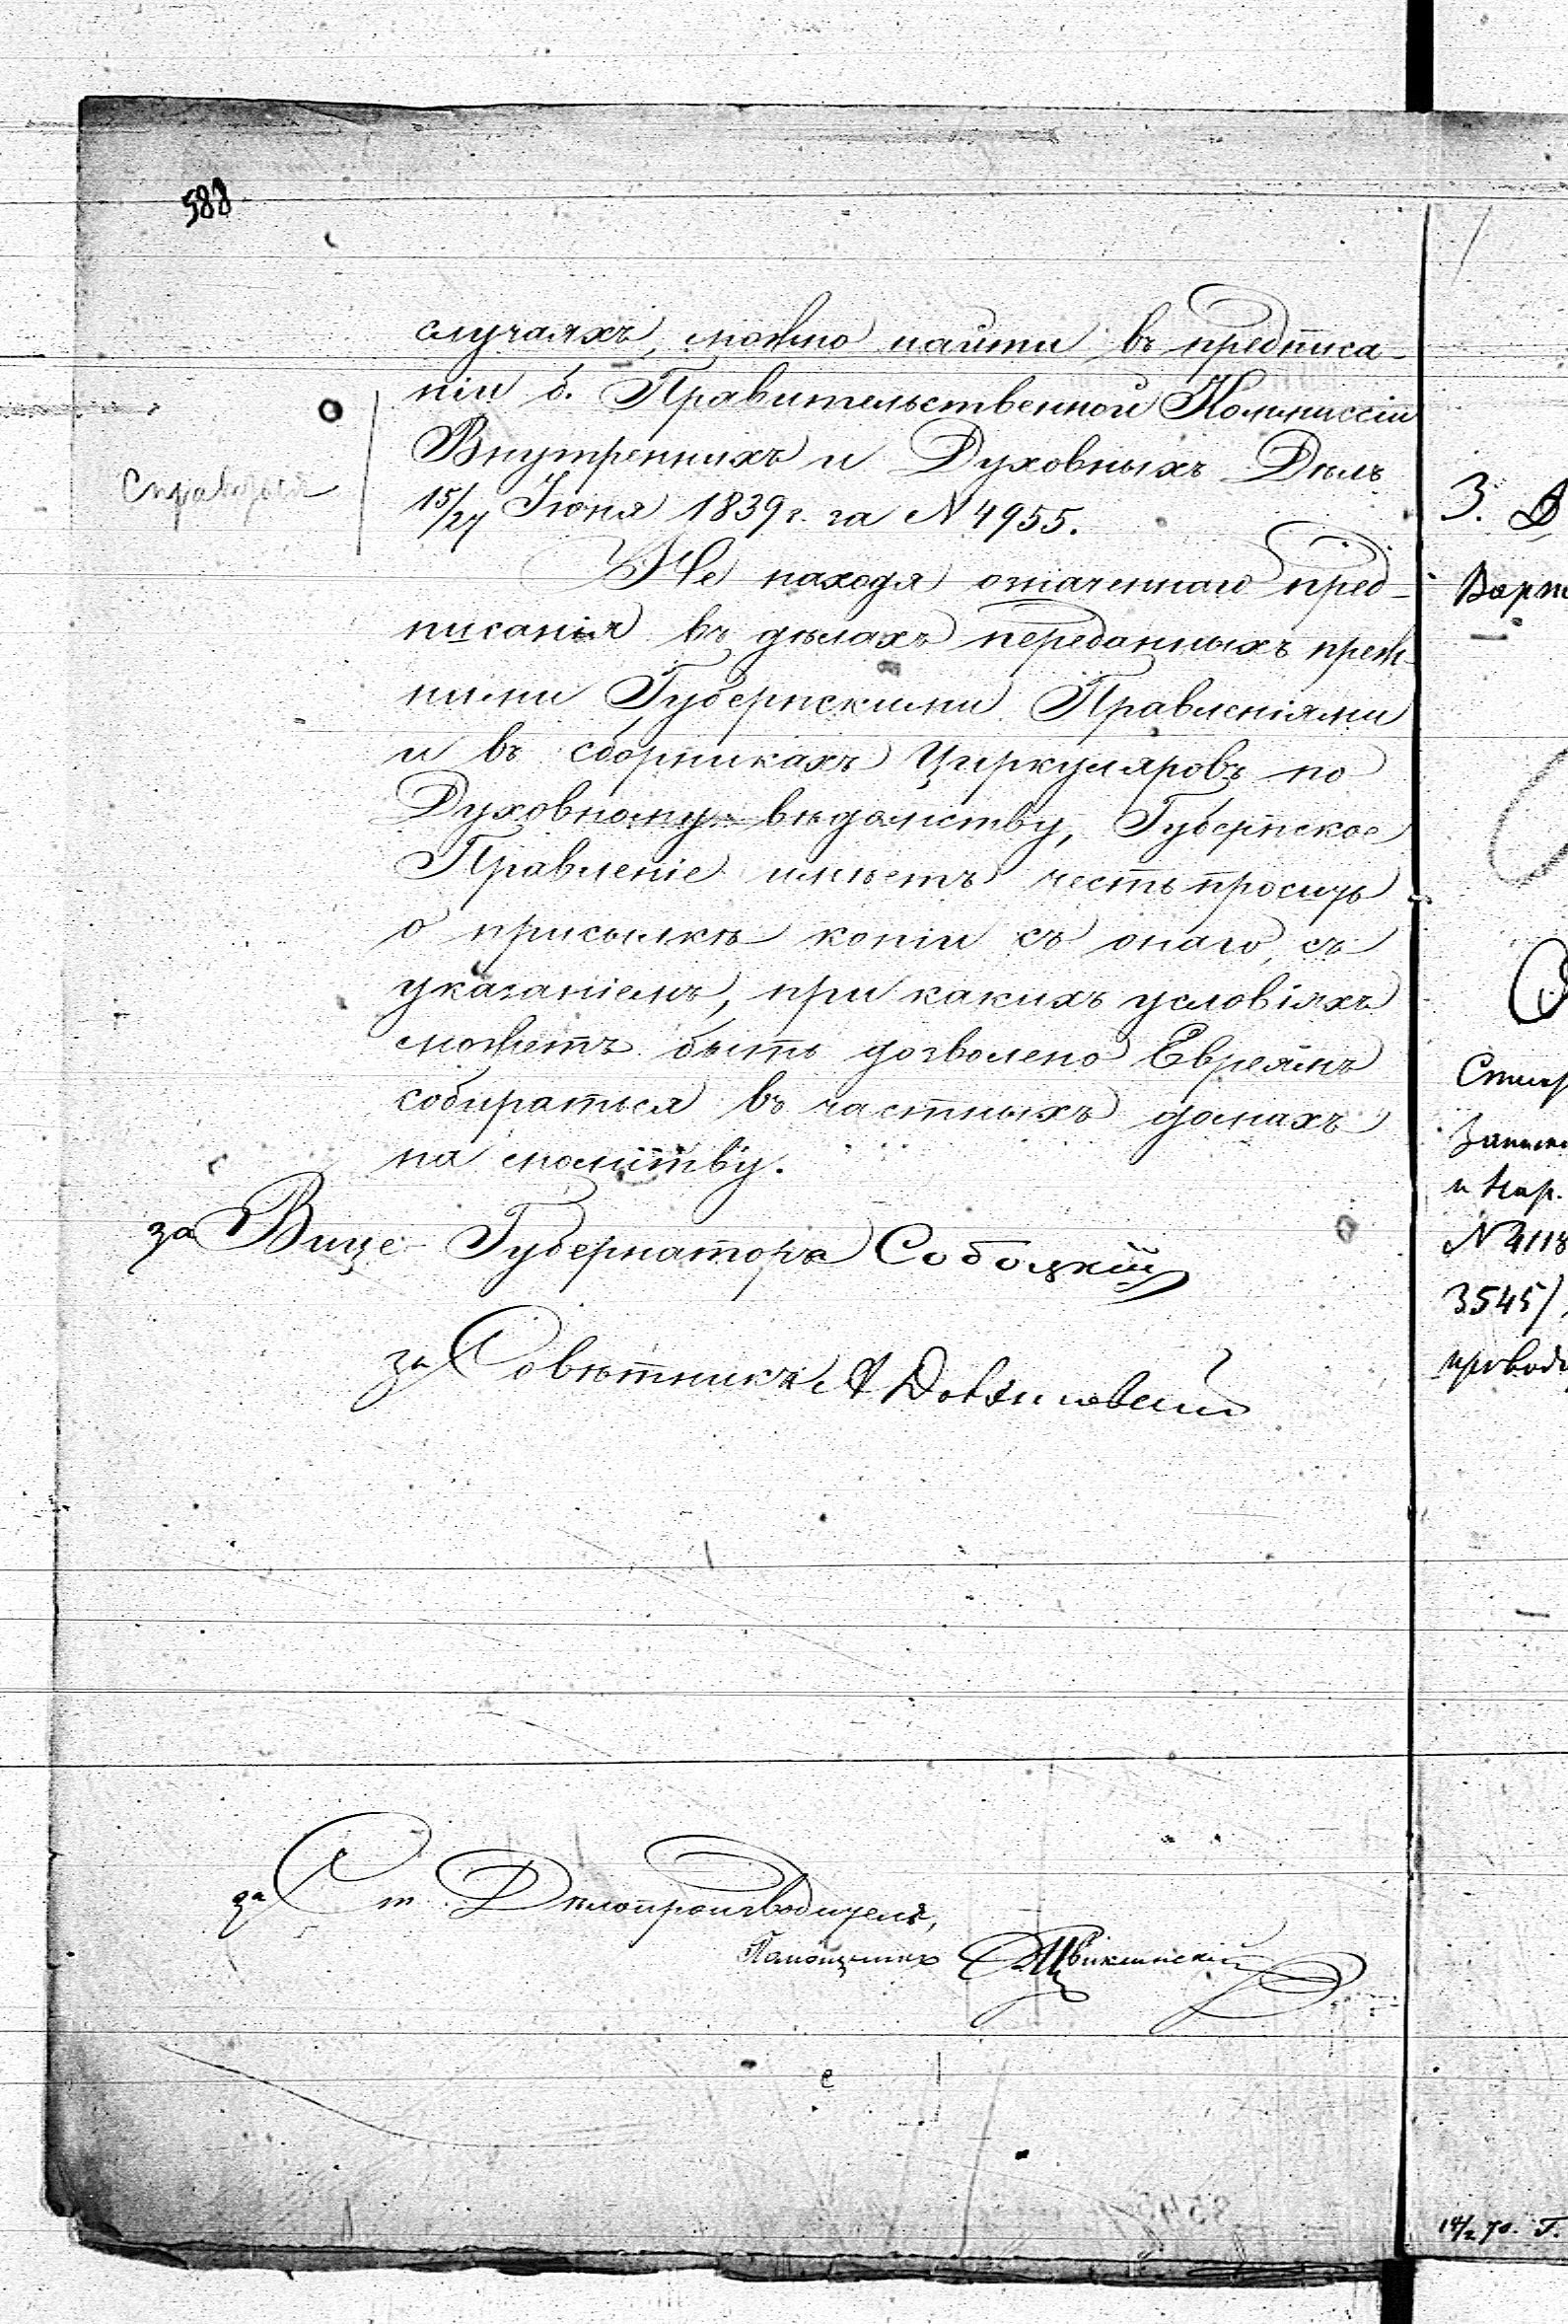 588
случаяхъ, можно найти въ предписа-
ніи б. Правительственной Коммиссіи
Внутреннихъ и Духовныхъ Дѣлъ
15/27 Іюня 1839 г. за № 4955.
Справиться
Не находя означеннаго пред-
писанія въ дѣлахъ переданныхъ преж-
ними Губернскими Правленіями
и въ сборникахъ Циркуляровъ по
Духовному вѣдомству, Губернское
Правленіе имѣетъ честь просить
о присылкѣ копіи съ онаго, съ
указаніемъ, при какихъ условіяхъ
можетъ быть дозволено Евреямъ
собираться въ частныхъ домахъ
на молитву.
за Вице-Губернатора Собоцкій
за Совѣтника
за Ст. Дѣлопроизводителя,
Помощникъ
3.
№ 4118
3545/
14/2 70. Г.